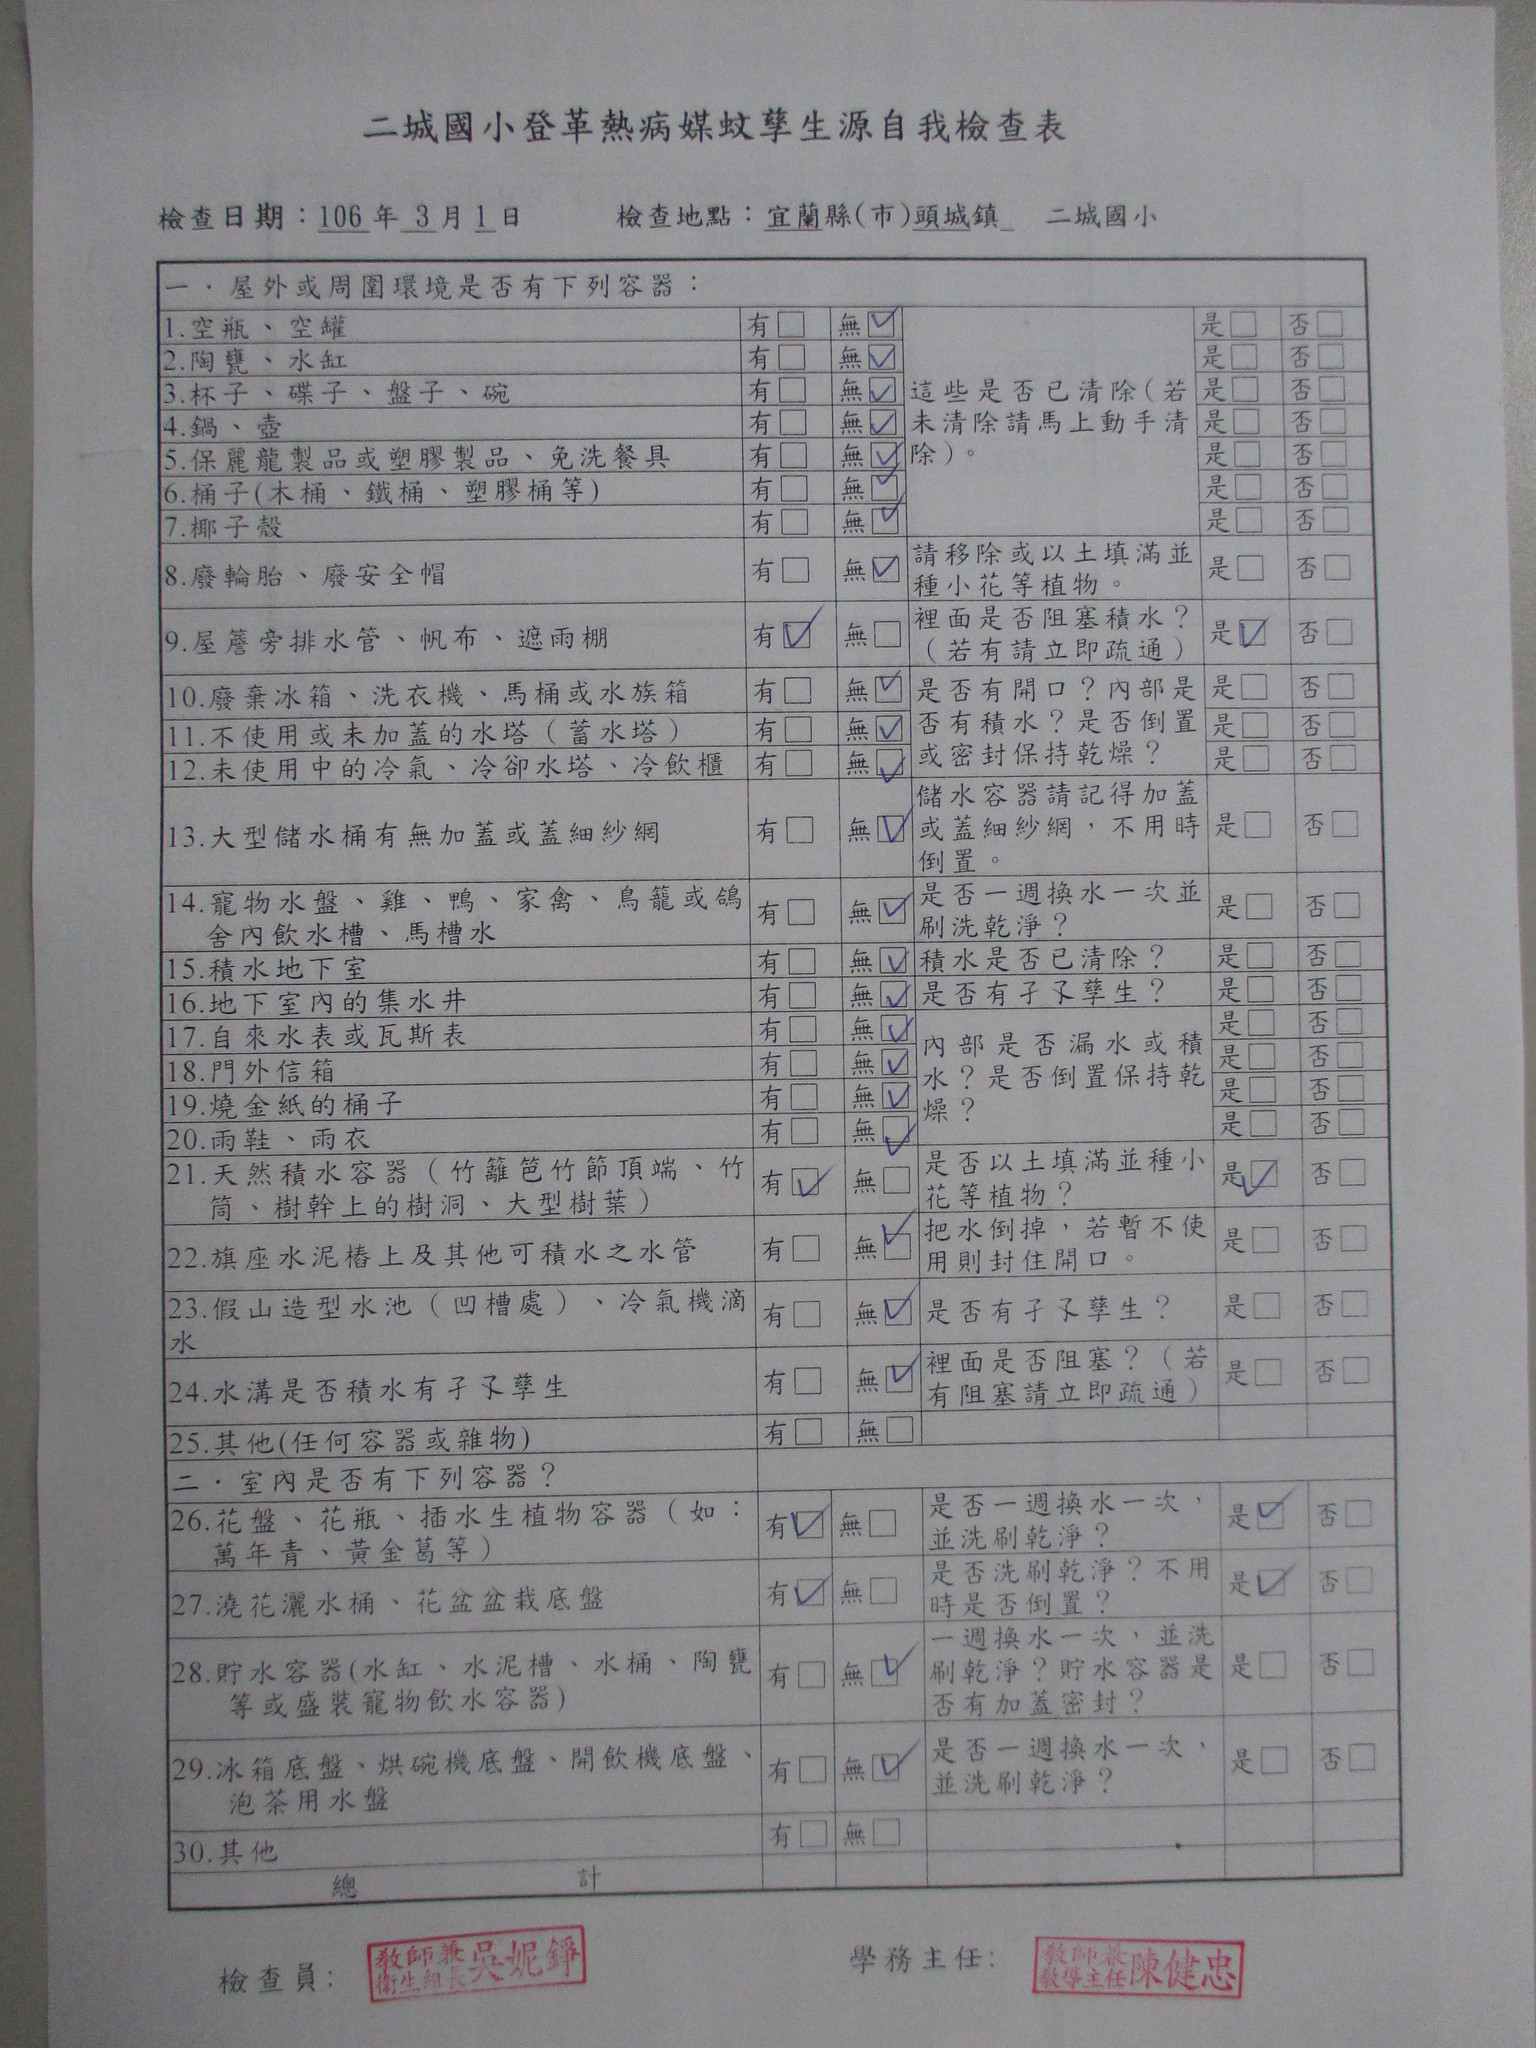 二城國小登革熱病媒蚊孳生源自我檢查表
檢查日期：106年 3月 1日 檢查地點：宜蘭縣(市)頭城鎮 二城國小
一．屋外或周圍環境是否有下列容器：
1.空瓶、空罐 有□ 無☑ 是□ 否□
2.陶甕、水缸 有□ 無☑ 是□ 否□
3.杯子、碟子、盤子、碗 有□ 無☑ 這些是否已清除(若 是□ 否□
4.鍋、壺 有□ 無☑ 未清除請馬上動手清 是□ 否□
5.保麗龍製品或塑膠製品、免洗餐具 有□ 無☑ 除)。 是□ 否□
6.桶子(木桶、鐵桶、塑膠桶等) 有□ 無☑ 是□ 否□
7.椰子殼 有□ 無☑ 是□ 否□
8.廢輪胎、廢安全帽 有□ 無☑ 請移除或以土填滿並 是□ 否□
種小花等植物。
9.屋簷旁排水管、帆布、遮雨棚 有☑ 無□ 裡面是否阻塞積水？ 是☑ 否□
（若有請立即疏通）
10.廢棄冰箱、洗衣機、馬桶或水族箱 有□ 無☑ 是否有開口？內部是 是□ 否□
11.不使用或未加蓋的水塔（蓄水塔） 有□ 無☑ 否有積水？是否倒置 是□ 否□
12.未使用中的冷氣、冷卻水塔、冷飲櫃 有□ 無☑ 或密封保持乾燥？ 是□ 否□
13.大型儲水桶有無加蓋或蓋細紗網 有□ 無☑ 儲水容器請記得加蓋 是□ 否□
或蓋細紗網，不用時
倒置。
14.寵物水盤、雞、鴨、家禽、鳥籠或鴿 有□ 無☑ 是否一週換水一次並 是□ 否□
舍內飲水槽、馬槽水 刷洗乾淨？
15.積水地下室 有□ 無☑ 積水是否已清除？ 是□ 否□
16.地下室內的集水井 有□ 無☑ 是否有孑孓孳生？ 是□ 否□
17.自來水表或瓦斯表 有□ 無☑ 內部是否漏水或積 是□ 否□
18.門外信箱 有□ 無☑ 水？是否倒置保持乾 是□ 否□
19.燒金紙的桶子 有□ 無☑ 燥？ 是□ 否□
20.雨鞋、雨衣 有□ 無☑ 是□ 否□
21.天然積水容器（竹籬笆竹節頂端、竹 有☑ 無□ 是否以土填滿並種小 是☑ 否□
筒、樹幹上的樹洞、大型樹葉） 花等植物？
22.旗座水泥樁上及其他可積水之水管 有□ 無☑ 把水倒掉，若暫不使 是□ 否□
用則封住開口。
23.假山造型水池（凹槽處）、冷氣機滴 有□ 無☑ 是否有孑孓孳生？ 是□ 否□
水
24.水溝是否積水有孑孓孳生 有□ 無☑ 裡面是否阻塞？（若 是□ 否□
有阻塞請立即疏通）
25.其他(任何容器或雜物) 有□ 無□
二．室內是否有下列容器？
26.花盤、花瓶、插水生植物容器（如： 有☑ 無□ 是否一週換水一次， 是☑ 否□
萬年青、黃金葛等） 並洗刷乾淨？
27.澆花灑水桶、花盆盆栽底盤 有☑ 無□ 是否洗刷乾淨？不用 是☑ 否□
時是否倒置？
28.貯水容器(水缸、水泥槽、水桶、陶甕 有□ 無☑ 一週換水一次，並洗 是□ 否□
等或盛裝寵物飲水容器) 刷乾淨？貯水容器是
否有加蓋密封？
29.冰箱底盤、烘碗機底盤、開飲機底盤、 有□ 無☑ 是否一週換水一次， 是□ 否□
泡茶用水盤 並洗刷乾淨？
30.其他 有□ 無□
總 計
檢查員： 教師兼衛生組長吳妮錚 學務主任： 教師兼教導主任陳健忠